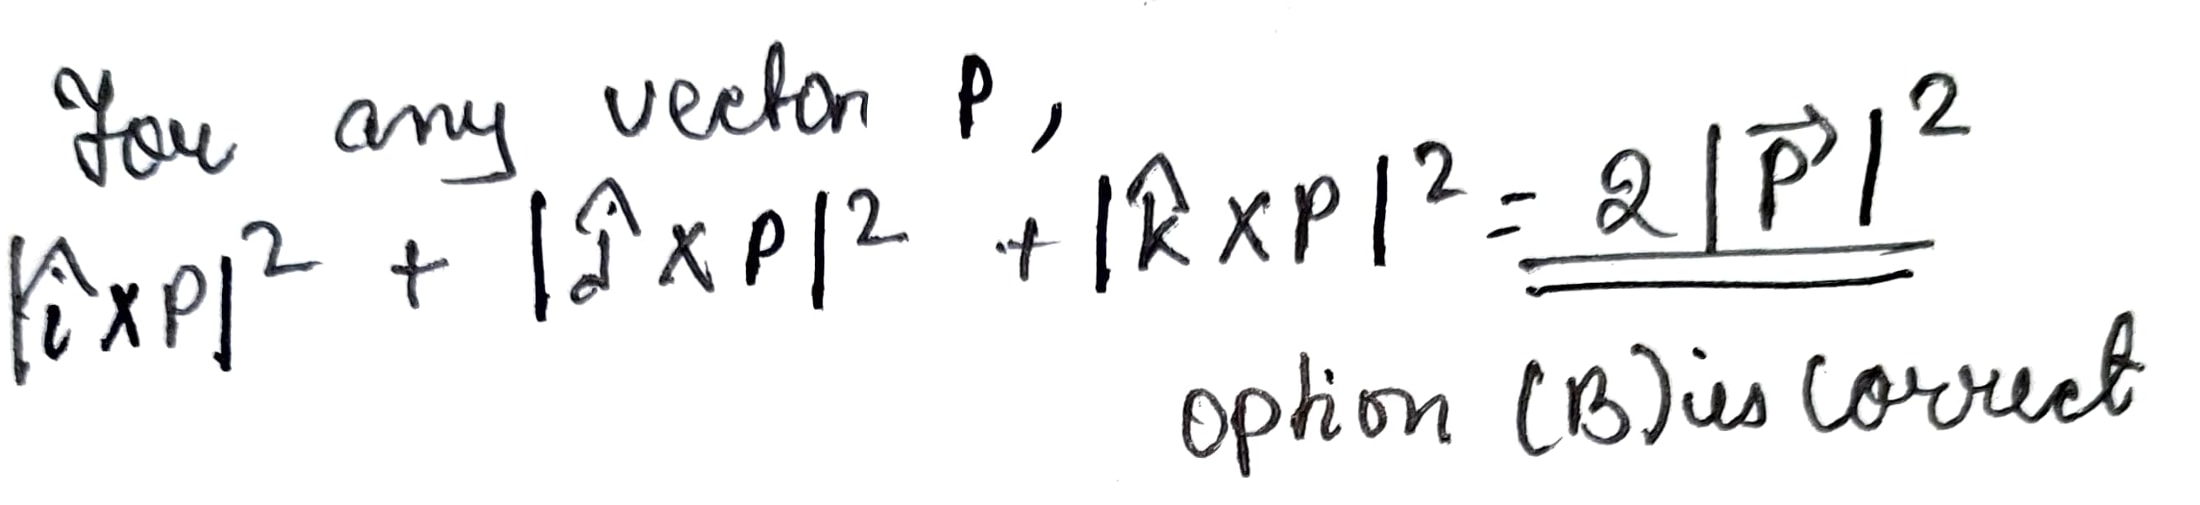 For any vector P,
|î×P|² + |ĵ×P|² + |k̂×P|² = 2|P⃗|²
option (B) is correct